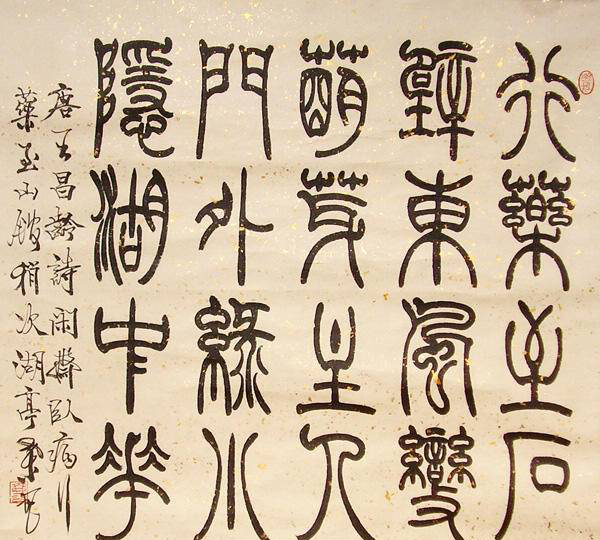 行藥至石
壁東風變
萌芽主人
門外綠小
隱湖中花
唐王昌齡詩閑齋臥病行
藥至山館稍次湖亭